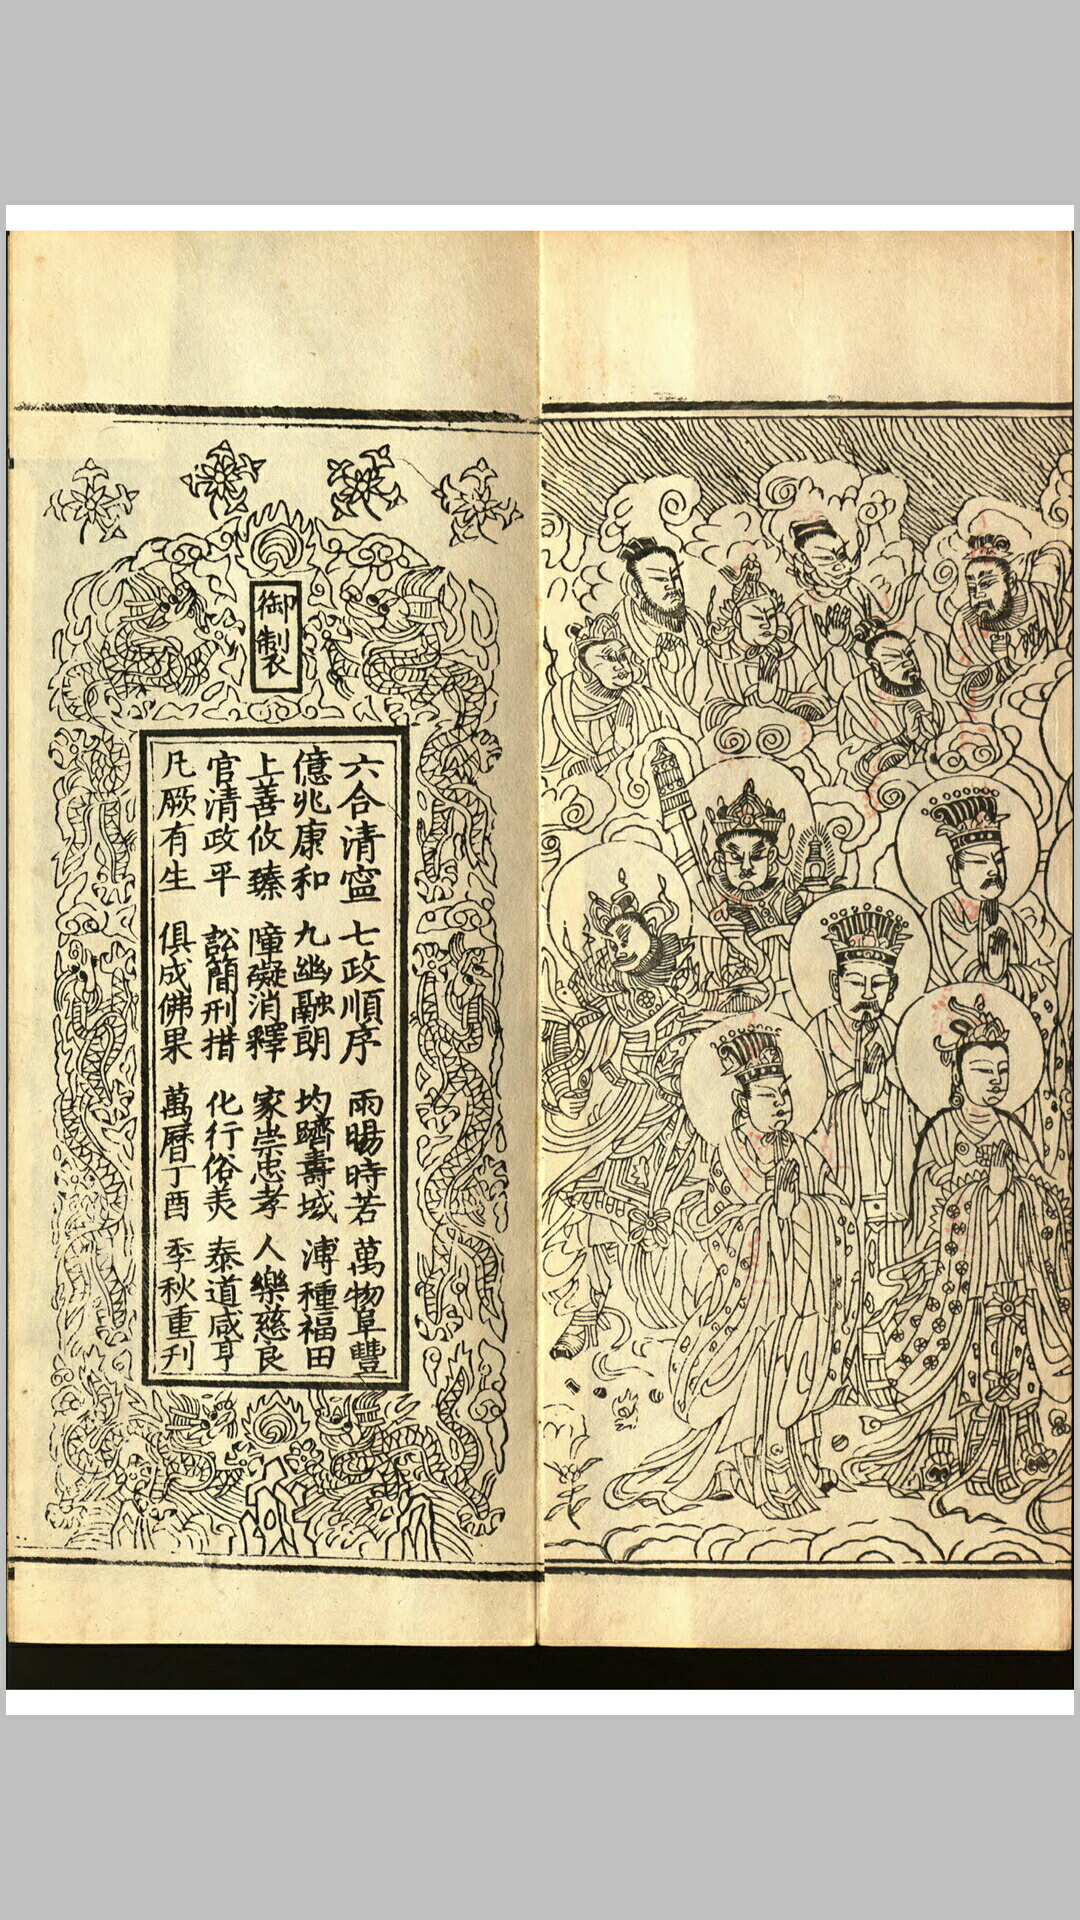 御製
六合清寧 七政順序 雨暘時若 萬物阜豐
億兆康和 九幽融朗 均躋壽域 溥種福田
上善攸臻 障礙消釋 家崇忠孝 人樂慈良
官清政平 訟簡刑措 化行俗美 泰道咸亨
凡厥有生 俱成佛果 萬曆丁酉 季秋重刋